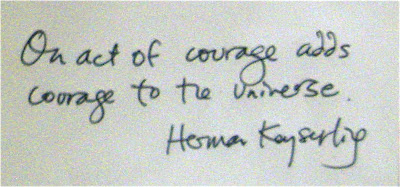 On act of courage adds
courage to the universe.
Herman Keyserling